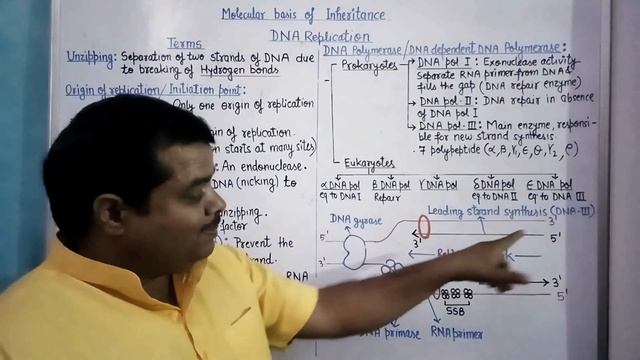 Molecular basis of Inheritance
DNA Replication
Terms
Unzipping: Separation of two strands of DNA due
to breaking of Hydrogen bonds
Origin of replication/Initiation point:
Only one origin of replication
in of replication.
n starts at many sites)
: An endonuclease.
DNA (nicking) to
unzipping.
factor
: Prevent the
and.
RNA
DNA Polymerase/DNA dependent DNA Polymerase:
Prokaryotes
DNA pol I: Exonuclease activity
separate RNA primer from DNA &
fills the gap (DNA repair enzyme)
DNA pol-II: DNA repair in absence
of DNA pol I
DNA pol-III: Main enzyme, responsi-
ble for new strand synthesis
7 polypeptide
Eukaryotes
α DNA pol
eq to DNA I
β DNA pol
Repair
γ DNA pol
δ DNA pol
eq to DNA II
ε DNA pol
eq to DNA III
Leading strand synthesis (DNA-III)
DNA gyrase
5'
3'
3'
3'
5'
3'
5'
SSB
DNA primase
RNA primer